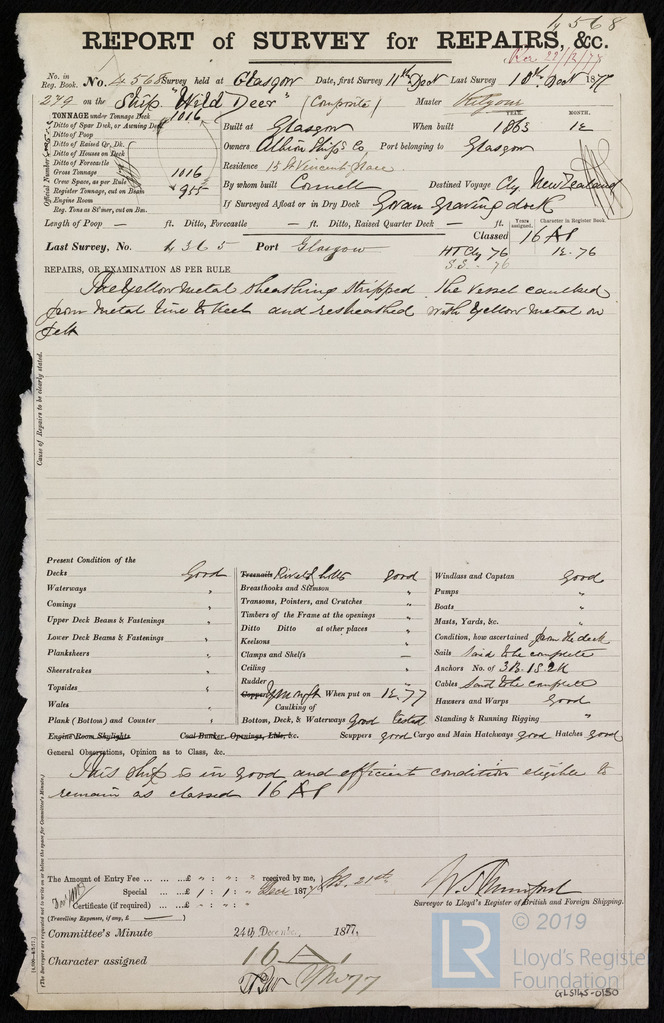 4568
REPORT of SURVEY for REPAIRS, &c.
Rec 22/12/77
No. in Reg. Book. No. 4568 Survey held at Glasgow Date, first Survey 11th Decr Last Survey 18th Decr 1877
279 on the Ship "Wild Deer" (Composite) Master Kilgour
TONNAGE under Tonnage Deck 1016
Ditto of Spar Deck, or Awning Deck
Ditto of Poop
Ditto of Raised Qr. Dk.
Ditto of Houses on Deck
Ditto of Forecastle
Gross Tonnage 1016
Crew Space, as per Rule
Register Tonnage, cut on Beam 955
Engine Room
Reg. Tons as St'mer, cut on Bm.
Official Number
YEAR. MONTH.
Built at Glasgow When built 1863 12
Owners Albion Shipg Co, Port belonging to Glasgow
Residence 15 St Vincent Place
By whom built Connell Destined Voyage Cly. New Zealand
If Surveyed Afloat or in Dry Dock Govan Graving dock
Length of Poop — ft. Ditto, Forecastle — ft. Ditto, Raised Quarter Deck — ft.
Years assigned. Character in Register Book.
Classed 16 A1
Last Survey, No. 4365 Port Glasgow HT Cly 76 12.76
S.S. 76
REPAIRS, OR EXAMINATION AS PER RULE
The Yellow Metal sheathing stripped. The vessel caulked
from Metal line to Keel and resheathed with Yellow Metal on
felt
Cause of Repairs to be clearly stated.
Present Condition of the
Decks Good
Waterways "
Comings "
Upper Deck Beams & Fastenings "
Lower Deck Beams & Fastenings "
Planksheers "
Sheerstrakes "
Topsides "
Wales "
Plank (Bottom) and Counter "
Engine Room Skylights Coal Bunker, Openings, Lids, &c.
Treenails Rivets & bolts good
Breasthooks and Stemson "
Transoms, Pointers, and Crutches "
Timbers of the Frame at the openings "
Ditto Ditto at other places "
Keelsons "
Clamps and Shelfs —
Ceiling "
Rudder "
Copper When put on 12.77
Caulking of
Bottom, Deck, & Waterways Good tested
Windlass and Capstan Good
Pumps "
Boats "
Masts, Yards, &c. "
Condition, how ascertained from the deck
Sails Said to be complete
Anchors No. of 3B. 1S. 2K
Cables Said to be complete
Hawsers and Warps Good
Standing & Running Rigging "
Scuppers good Cargo and Main Hatchways good Hatches good
General Observations, Opinion as to Class, &c.
This Ship is in good and efficient condition eligible to
remain as classed 16 A1
The Amount of Entry Fee ... £ " : " : " received by me,
Special ... £ 1 : 1 : " Decr 1877
Certificate (if required) ... £ " : " : "
(Travelling Expenses, if any, £ — )
Surveyor to Lloyd's Register of British and Foreign Shipping.
Committee's Minute 24th December 1877.
Character assigned 16 A1
YM 12.77
(The Surveyors are requested not to write on or below the space for Committee's Minute.)
© 2019
LR
Lloyd's Register
Foundation
GLS145-0150